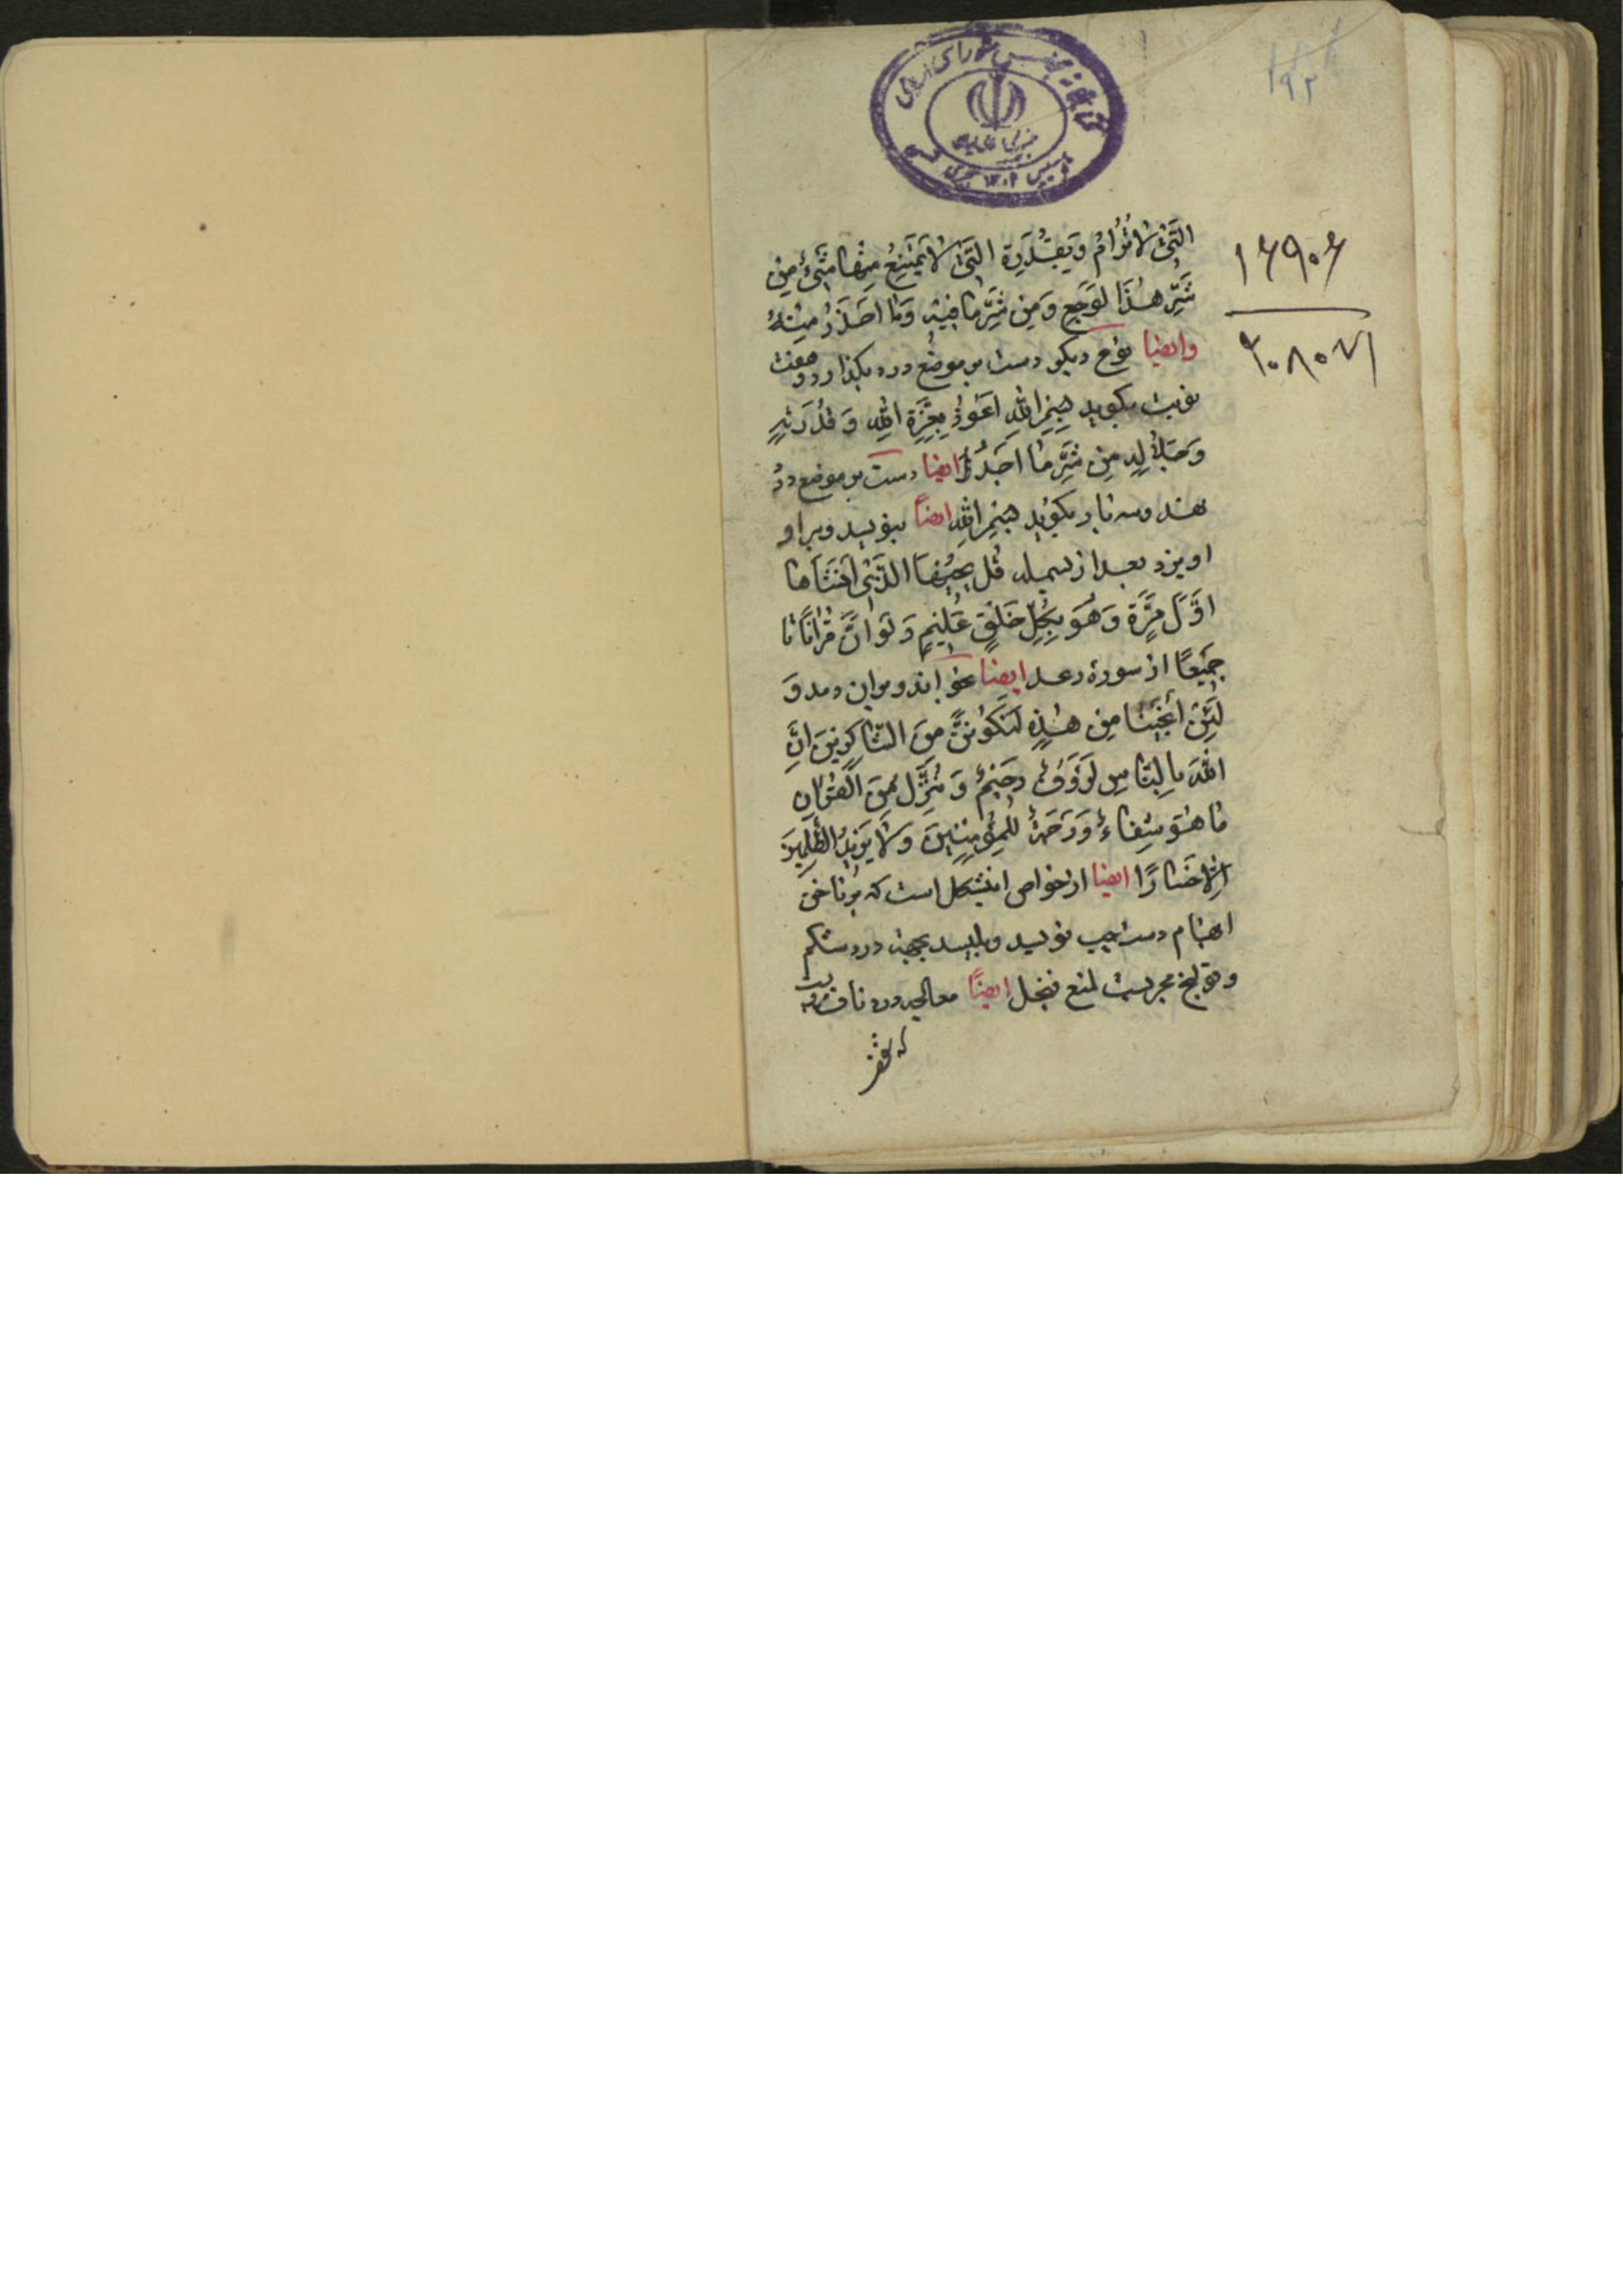 ۱۹۲
کتابخانه مجلس شورای اسلامی
۱۶۹۰۶
۳۰۸۰۷۱
الَّتی لا تُرامُ وَ بِقُدرَةِ الَّتی لا یَمتَنِعُ مِنها شَیءٌ مِن
شَرِّ هٰذَا لوَجَعِ وَ مِن شَرِّ ما فیهِ وَ ما احذَرُ مِنهُ
وایضا نوع دیکر دست بر موضع درد بکذارد و هفت
نوبت بکوید بِسمِ اللّٰهِ اَعُوذُ بِعِزَّةِ اللّٰهِ وَ قُدرَتِهِ
مِن شَرِّ ما اَجِدُ ایضا دست بر موضع درد
نهد و سه بار بکوید بِسمِ اللّٰهِ ایضاً بنویسد و بر او
اویزد بعد از بسمله قُل یُحییهَا الَّذی اَنشَاَها
اَوَّلَ مَرَّةٍ وَ هُوَ بِکُلِّ خَلقٍ عَلیمٌ وَ لَو اَنَّ قُرآنًا تا
جَمیعًا از سورهٔ رعد ایضا بخواند و بران دمد وَ
لَئِن اَنجَیتَنا مِن هٰذِهِ لَنَکُونَنَّ مِنَ الشّاکِرینَ اِنَّ
اللّٰهَ بِالنّاسِ لَرَؤُفٌ رَحیمٌ وَ نُنَزِّلُ مِنَ القُرآنِ
ما هُوَ شِفاءٌ وَ رَحمَةٌ لِلمُؤمِنینَ وَ لا یَزیدُ الظّالِمینَ
اِلّا خَسارًا ایضا از خواص اینشکل است که بر ناخن
ابهام دست چپ نویسد و بلیسد بجهت درد شکم
و قولنج مجربست لمنع فنجل ایضًا معالجه درد ناف